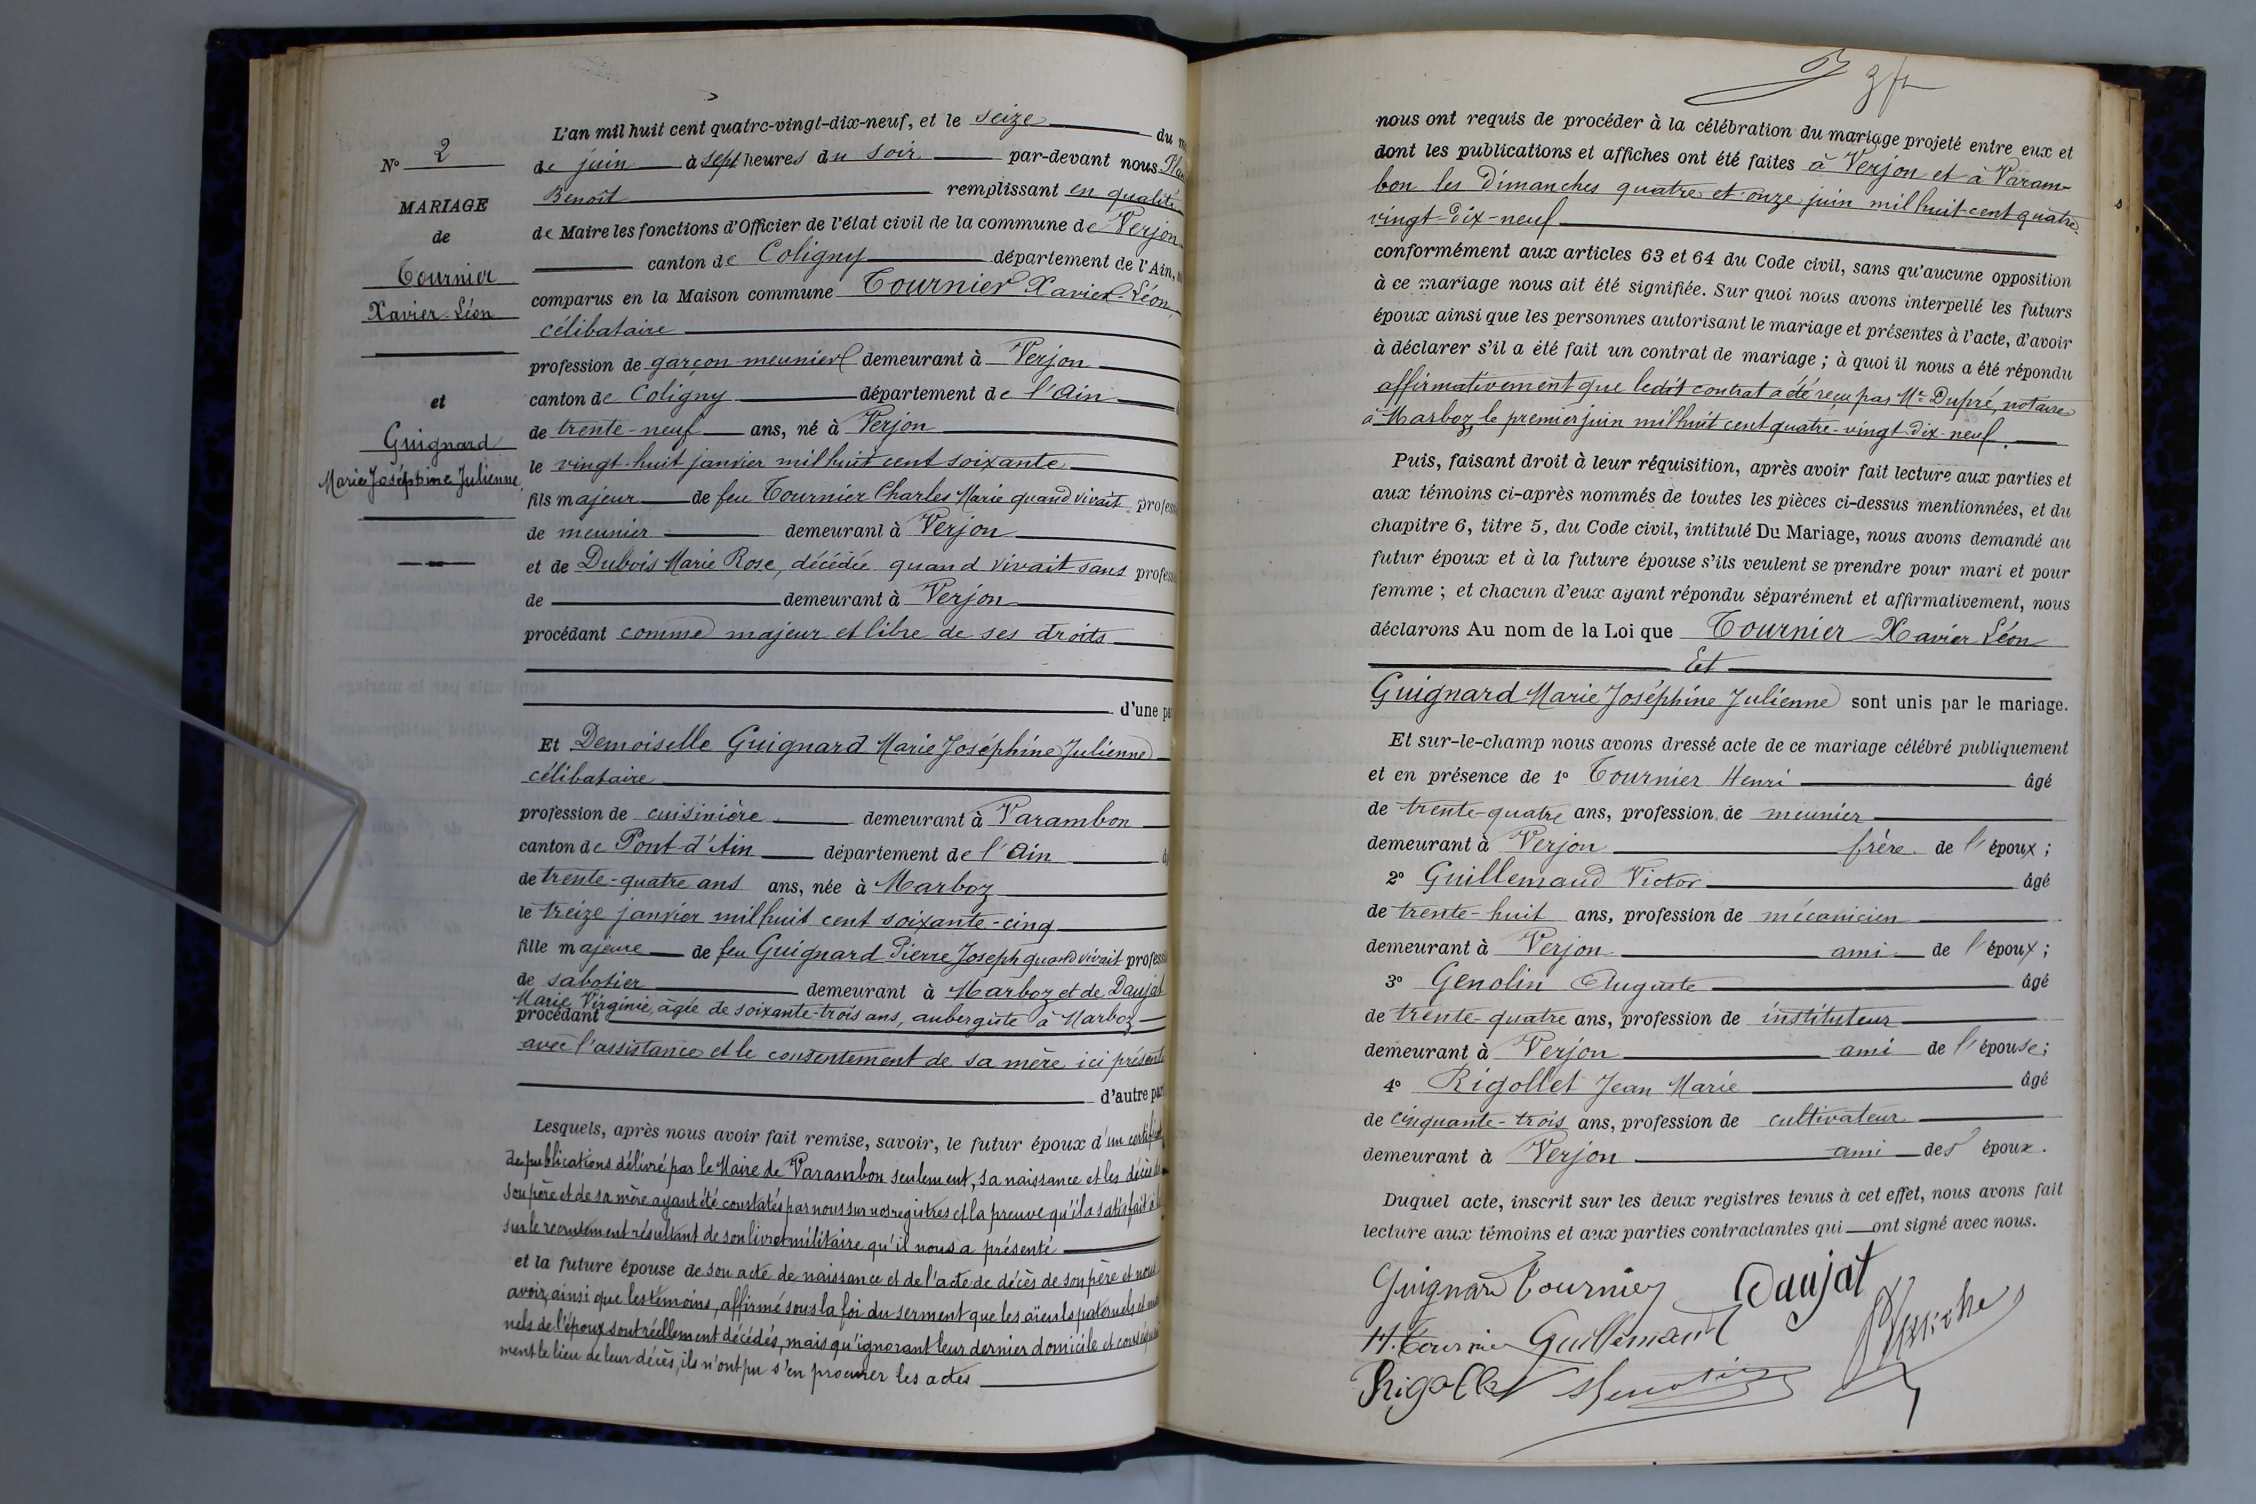 N° 2
MARIAGE
de
Tournier
Xavier Léon
et
Guignard
Marie Joséphine Julienne
L'an mil huit cent quatre-vingt-dix-neuf, et le seize du
de juin à sept heures du soir par-devant nous
Benoît remplissant en qualité
de Maire les fonctions d'Officier de l'état civil de la commune de Verjon
canton de Coligny département de l'Ain,
comparus en la Maison commune Tournier Xavier Léon,
célibataire
profession de garçon meunier demeurant à Verjon
canton de Coligny département de l'Ain
de trente-neuf ans, né à Verjon
le vingt-huit janvier mil huit cent soixante
fils majeur de feu Tournier Charles Marie quand vivait
de meunier demeurant à Verjon
et de Dubois Marie Rose, décédée quand vivait sans
de demeurant à Verjon
procédant comme majeur et libre de ses droits
d'une
Et Demoiselle Guignard Marie Joséphine Julienne
célibataire
profession de cuisinière demeurant à Varambon
canton de Pont-d'Ain département de l'Ain
de trente-quatre ans ans, née à Marboz
le treize janvier mil huit cent soixante-cinq
fille majeure de feu Guignard Pierre Joseph quand vivait
de sabotier demeurant à Marboz et de Daujat
Marie Virginie, âgée de soixante-trois ans, aubergiste à Marboz
procédant
avec l'assistance et le consentement de sa mère ici présente
d'autre
Lesquels, après nous avoir fait remise, savoir, le futur époux d'un certificat
de publications délivré par le Maire de Varambon seulement, sa naissance et les décès de
son père et de sa mère ayant été constatés par nous sur nos registres et la preuve qu'il a satisfait à la
sur le recrutement résultant de son livret militaire qu'il nous a présenté
et la future épouse de son acte de naissance et de l'acte de décès de son père et nous
avoir, ainsi que les témoins, affirmé sous la foi du serment que les aïeuls paternels et
nels de l'époux sont réellement décédés, mais qu'ignorant leur dernier domicile et
ment le lieu de leur décès, ils n'ont pu s'en procurer les actes
nous ont requis de procéder à la célébration du mariage projeté entre eux et
dont les publications et affiches ont été faites à Verjon et à Varam-
bon les Dimanches quatre et onze juin mil huit-cent quatre-
vingt-dix-neuf
conformément aux articles 63 et 64 du Code civil, sans qu'aucune opposition
à ce mariage nous ait été signifiée. Sur quoi nous avons interpellé les futurs
époux ainsi que les personnes autorisant le mariage et présentes à l'acte, d'avoir
à déclarer s'il a été fait un contrat de mariage ; à quoi il nous a été répondu
affirmativement que ledit contrat a été reçu par Me Dupré, notaire
à Marboz, le premier juin mil huit cent quatre-vingt-dix-neuf.
Puis, faisant droit à leur réquisition, après avoir fait lecture aux parties et
aux témoins ci-après nommés de toutes les pièces ci-dessus mentionnées, et du
chapitre 6, titre 5, du Code civil, intitulé Du Mariage, nous avons demandé au
futur époux et à la future épouse s'ils veulent se prendre pour mari et pour
femme ; et chacun d'eux ayant répondu séparément et affirmativement, nous
déclarons Au nom de la Loi que Tournier Xavier Léon
Et
Guignard Marie Joséphine Julienne sont unis par le mariage.
Et sur-le-champ nous avons dressé acte de ce mariage célébré publiquement
et en présence de 1° Tournier Henri âgé
de trente-quatre ans, profession de meunier
demeurant à Verjon frère de l'époux ;
2° Guillemaud Victor âgé
de trente-huit ans, profession de mécanicien
demeurant à Verjon ami de l'époux ;
3° Genolin Auguste âgé
de trente-quatre ans, profession de instituteur
demeurant à Verjon ami de l'épouse ;
4° Rigollet Jean Marie âgé
de cinquante-trois ans, profession de cultivateur
demeurant à Verjon ami des époux.
Duquel acte, inscrit sur les deux registres tenus à cet effet, nous avons fait
lecture aux témoins et aux parties contractantes qui ont signé avec nous.
Guignard Tournier Daujat
H. Tournier Guillemaud
Rigollet